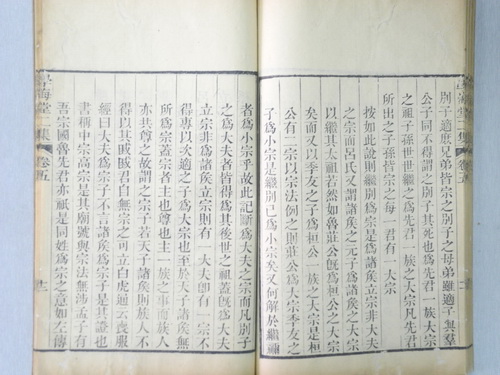 別子適庶兄弟皆宗之別子之母弟雖適子與羣
公子同不得謂之別子其死也爲先君一族大宗
之祖子孫世世繼之爲先君一族之大宗凡先君
所出之子孫皆宗之母君有一大宗
按如此說則繼別爲宗是爲諸矦立宗非大夫
之宗而呂氏又謂諸矦之元子爲諸矦大宗
以繼其太祖若然如魯莊公繼桓公爲大宗
矣而又以季友之子爲桓公一族之大宗是桓
公有二宗以宗法例之則莊公爲大宗季友之
子爲小宗是繼別已爲小宗矣又何解於繼禰
者爲小宗乎故此記所爲大夫之宗而凡別子
之爲大夫者皆得爲其後世之祖蓋旣爲大夫
立宗非爲諸矦立宗則有一大夫卽有一宗不
得專以次適之子爲大宗也至於天子諸矦無
所爲宗蓋宗者主也尊也主一族之事而族人
亦共尊之故謂之宗子若天子諸矦則族人不
得以其戚戚君自無宗之可立白虎通云喪服
經曰大夫爲宗子不言諸矦爲宗子是其證也
書稱中宗高宗是其廟號與宗法無涉孟子有
吾宗國魯先君亦祇是同姓爲宗之意如左傳
壽海堂二集
卷五